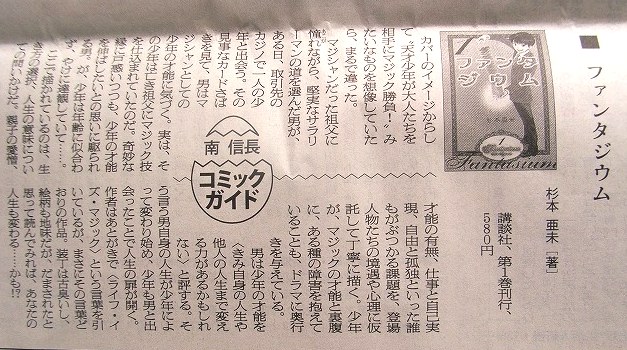 ■ ファンタジウム
杉本 亜未 [著]
講談社、第1巻刊行、
580円
ファンタ
ジウム
1
Fantasium
カバーのイメージからし
て、"天才少年が大人たちを
相手にマジック勝負！"み
たいなものを想像していた
ら、まるで違った。
マジシャンだった祖父に
憧れながら、堅実なサラリ
ーマンの道を選んだ男が、
ある日、取引先の
カジノで一人の少
年と出会う。その
見事なカードさば
きを見て、男はマ
ジシャンとしての
少年の才能に気づく。実は、そ
の少年は亡き祖父にマジック技
を仕込まれていたのだ。奇妙な
縁に戸惑いつつも、少年の才能
を伸ばしたいとの思いに駆られ
る男。が、少年は年齢に似合わ
ず、やけに達観していて……。
ここで描かれているのは、生
き方の選択、人生の意味につい
ての問いかけだ。親子の愛憎、
南 信長
コミック
ガイド
才能の有無、仕事と自己実
現、自由と孤独といった誰
もがぶつかる課題を、登場
人物たちの境遇や心理に仮
託して丁寧に描く。少年
が、マジックの才能と裏腹
に、ある種の障害を抱えて
いることも、ドラマに奥行
きを与えている。
男は少年の才能を
〈きみ自身の人生や
他人の人生まで変え
る力があるかもしれ
ない〉と評する。そ
う言う男自身の人生が少年によ
って変わり始め、少年も男と出
会ったことで人生の扉が開く。
作者はあとがきで〈ライフ・イ
ズ・マジック〉という言葉を引
いているが、まさにその言葉ど
おりの作品。装丁は古臭いし、
絵柄も地味だが、だまされたと
思って読んでみれば、あなたの
人生も変わる……かも!?